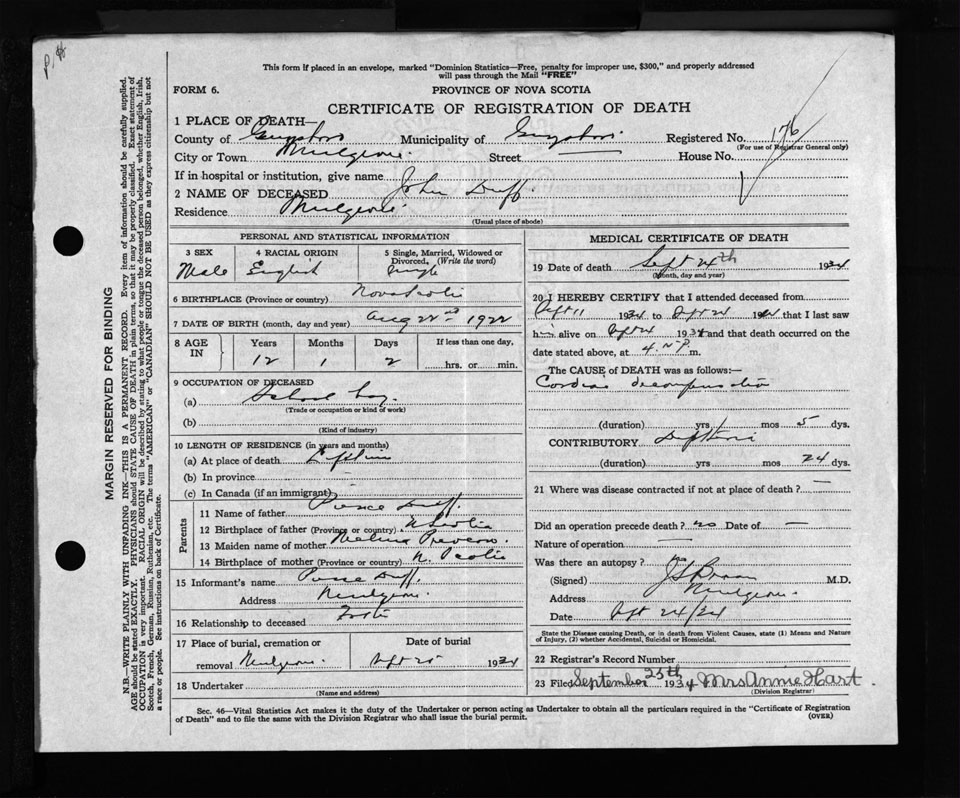 P. H
This form if placed in an envelope, marked "Dominion Statistics—Free, penalty for improper use, $300," and properly addressed
will pass through the Mail "FREE"
FORM 6.
PROVINCE OF NOVA SCOTIA
CERTIFICATE OF REGISTRATION OF DEATH
1 PLACE OF DEATH—
County of Guysboro Municipality of Guysboro Registered No. 176
(For use of Registrar General only)
City or Town Mulgrave. Street House No.
If in hospital or institution, give name
2 NAME OF DECEASED John Duff
Residence Mulgrave.
(Usual place of abode)
PERSONAL AND STATISTICAL INFORMATION
3 SEX 4 RACIAL ORIGIN 5 Single, Married, Widowed or Divorced. (Write the word)
Male English Single
6 BIRTHPLACE (Province or country) Nova Scotia
7 DATE OF BIRTH (month, day and year) Aug 22nd 1922
8 AGE IN Years Months Days If less than one day,
12 1 2 hrs. or min.
9 OCCUPATION OF DECEASED
(a) School boy.
(Trade or occupation or kind of work)
(b)
(Kind of industry)
10 LENGTH OF RESIDENCE (in years and months)
(a) At place of death Lifetime
(b) In province
(c) In Canada (if an immigrant)
Parents
11 Name of father Duff.
12 Birthplace of father (Province or country) N Scotia
13 Maiden name of mother
14 Birthplace of mother (Province or country) N. Scotia
15 Informant's name Duff.
Address Mulgrave.
16 Relationship to deceased Father
17 Place of burial, cremation or Date of burial
removal Mulgrave. Sept 25 1934
18 Undertaker
(Name and address)
MEDICAL CERTIFICATE OF DEATH
19 Date of death Sept 24th 1934
(Month, day and year)
20 I HEREBY CERTIFY that I attended deceased from
Sept 11 1934 to Sept 24 1934 that I last saw
him alive on Sept 24 1934 and that death occurred on
date stated above, at 4 P. m.
The CAUSE of DEATH was as follows:—
Cardiac decompensation
(duration) yrs mos 5 dys.
CONTRIBUTORY Diphtheria
(duration) yrs mos 24 dys.
21 Where was disease contracted if not at place of death? —
Did an operation precede death? no Date of —
Nature of operation —
Was there an autopsy?
(Signed) M.D.
Address Mulgrave.
Date Sept 24/34
State the Disease causing Death, or in death from Violent Causes, state (1) Means and Nature
of Injury, (2) whether Accidental, Suicidal or Homicidal.
22 Registrar's Record Number
23 Filed September 25th 1934 Mrs Annie Hart.
(Division Registrar)
Sec. 46—Vital Statistics Act makes it the duty of the Undertaker or person acting as Undertaker to obtain all the particulars required in the "Certificate of Registration
of Death" and to file the same with the Division Registrar who shall issue the burial permit.
(OVER)
MARGIN RESERVED FOR BINDING
N.B.—WRITE PLAINLY WITH UNFADING INK—THIS IS A PERMANENT RECORD. Every item of information should be carefully supplied.
AGE should be stated EXACTLY. PHYSICIANS should STATE CAUSE OF DEATH in plain terms, so that it may be properly classified. Exact statement of
OCCUPATION is very important. RACIAL ORIGIN will be described by stating to what people or tongue the deceased person belonged, whether English, Irish,
Scotch, French, German, Russian, Ruthenian, etc. The terms "AMERICAN" or "CANADIAN" SHOULD NOT BE USED as they express citizenship but not
a race or people. See instructions on back of Certificate.